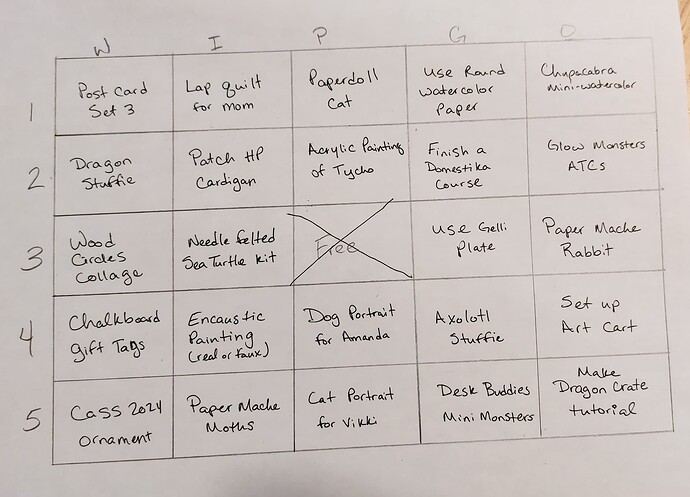 W I P G O
1
Post Card
Set 3
Lap quilt
for mom
Paperdoll
Cat
Use Round
Watercolor
Paper
Chupacabra
Mini-watercolor
2
Dragon
Stuffie
Patch HP
Cardigan
Acrylic Painting
of Tycho
Finish a
Domestika
Course
Glow Monsters
ATCs
3
Wood
Circles
Collage
Needle felted
Sea Turtle kit
Free
Use Gelli
Plate
Paper Mache
Rabbit
4
Chalkboard
Gift Tags
Encaustic
Painting
(real or faux)
Dog Portrait
for Amanda
Axolotl
Stuffie
Set up
Art Cart
5
Cass 2024
Ornament
Paper Mache
Moths
Cat Portrait
for Vikki
Desk Buddies
Mini Monsters
Make
Dragon Crate
tutorial